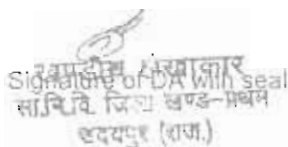 खण्डीय लेखाकार
Signature of DA with seal
सा.नि.वि. जिला खण्ड-प्रथम
उदयपुर (राज.)